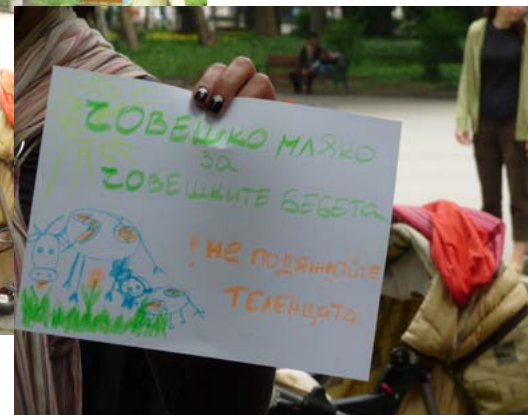 ЧОВЕШКО МЛЯКО
за
ЧОВЕШКИТЕ БЕБЕТА
! НЕ ПОДЯЖДАЙТЕ
ТЕЛЕНЦАТА